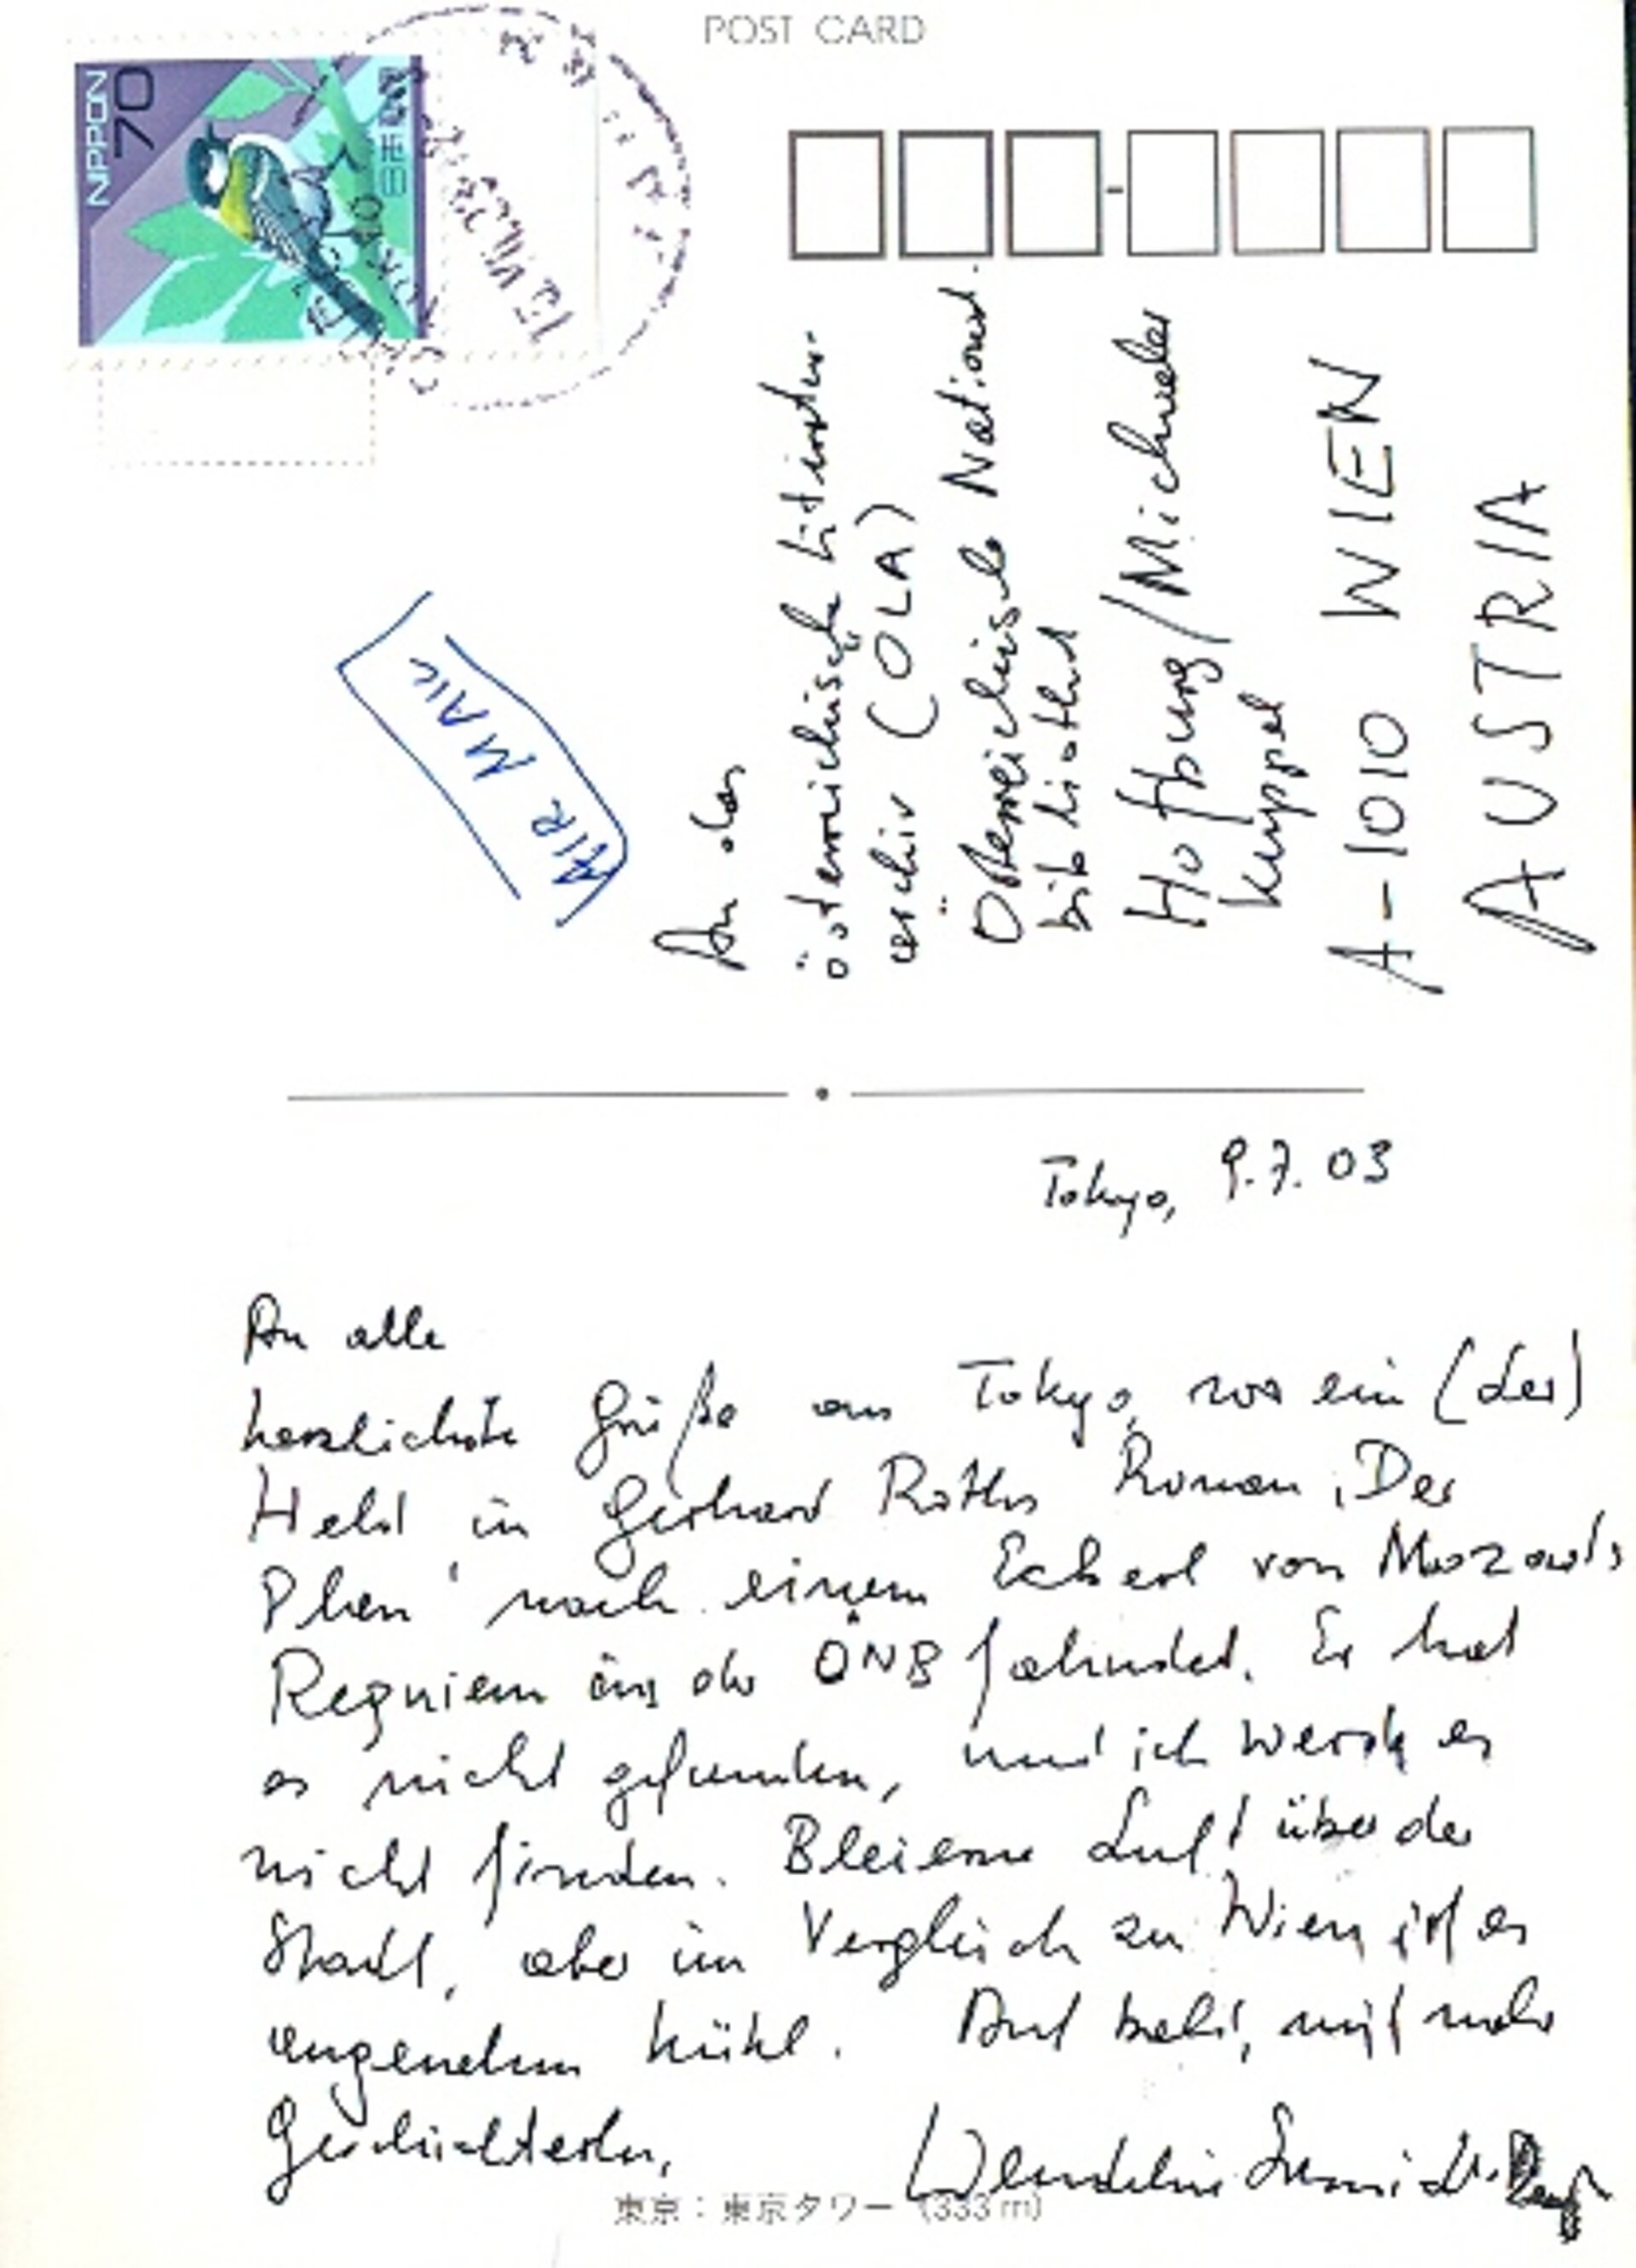 POST CARD
NIPPON
70
日本郵便
AIR MAIL
An das
österreichische Literatur-
archiv (ÖLA)
Österreichische National
bibliothek
Hofburg/Michaeler
kuppel
A-1010 WIEN
AUSTRIA
Tokyo, 9.7.03
An alle
herzlichste Grüße aus Tokyo, wo ein (der)
Held in Gerhard Roths Roman ‚Der
Plan' nach einem Eckerl von Mozarts
Requiem aus der ÖNB fahndet. Er hat
es nicht gefunden, und ich werde es
nicht finden. Bleierne Luft über der
Stadt, aber im Vergleich zu Wien ist es
angenehm kühl. Auf bald, mit mehr
Geschichterln,
Wendelin Schmidt-Deng
東京：東京タワー (333m)